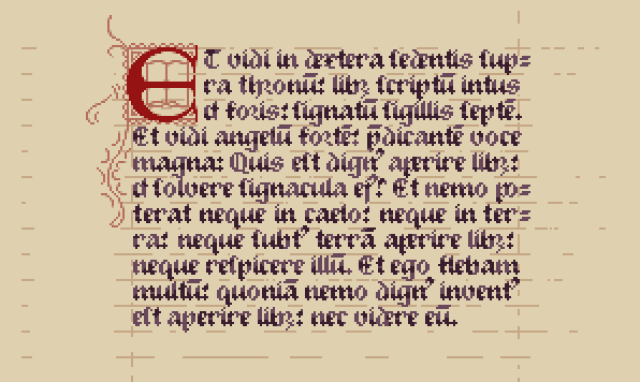 ET vidi in dextera ſedentis ſup=
ra thronū: libꝝ ſcriptū intus
et foris: ſignatū ſigillis ſeptē.
Et vidi angelū fortē: p̄dicantē voce
magna: Quis eſt dign⁹ aperire libꝝ:
et ſolvere ſignacula ej⁹? Et nemo po=
terat neque in caelo: neque in ter=
ra: neque ſubt⁹ terrā aperire libꝝ:
neque reſpicere illū. Et ego flebam
multū: quoniā nemo dign⁹ invent⁹
eſt aperire libꝝ: nec videre eū.